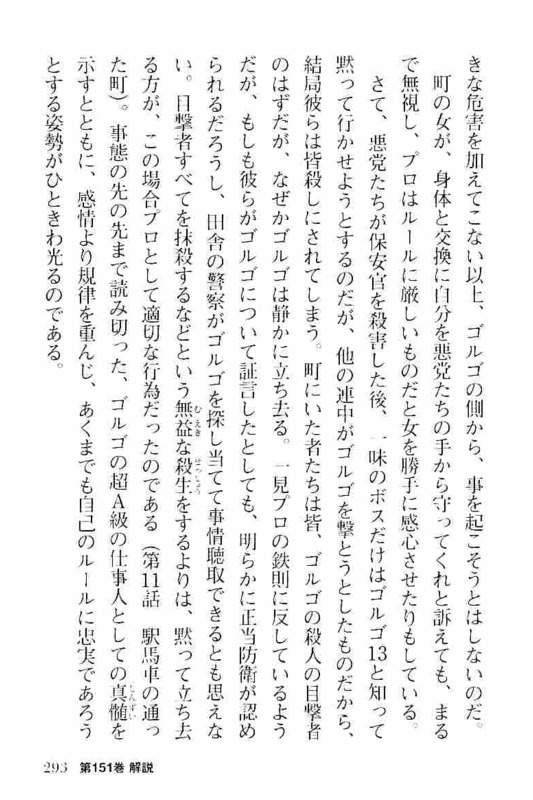 きな危害を加えてこない以上、ゴルゴの側から、事を起こそうとはしないのだ。
町の女が、身体と交換に自分を悪党たちの手から守ってくれと訴えても、まる
で無視し、プロはルールに厳しいものだと女を勝手に感心させたりもしている。
さて、悪党たちが保安官を殺害した後、一味のボスだけはゴルゴ13と知って
黙って行かせようとするのだが、他の連中がゴルゴを撃とうとしたものだから、
結局彼らは皆殺しにされてしまう。町にいた者たちは皆、ゴルゴの殺人の目撃者
のはずだが、なぜかゴルゴは静かに立ち去る。一見プロの鉄則に反しているよう
だが、もしも彼らがゴルゴについて証言したとしても、明らかに正当防衛が認め
られるだろうし、田舎の警察がゴルゴを探し当てて事情聴取できるとも思えな
い。目撃者すべてを抹殺するなどという無益な殺生をするよりは、黙って立ち去
る方が、この場合プロとして適切な行為だったのである（第11話　駅馬車の通っ
た町）。事態の先の先まで読み切った、ゴルゴの超A級の仕事人としての真髄を
示すとともに、感情より規律を重んじ、あくまでも自己のルールに忠実であろう
とする姿勢がひときわ光るのである。
293 第151巻 解説